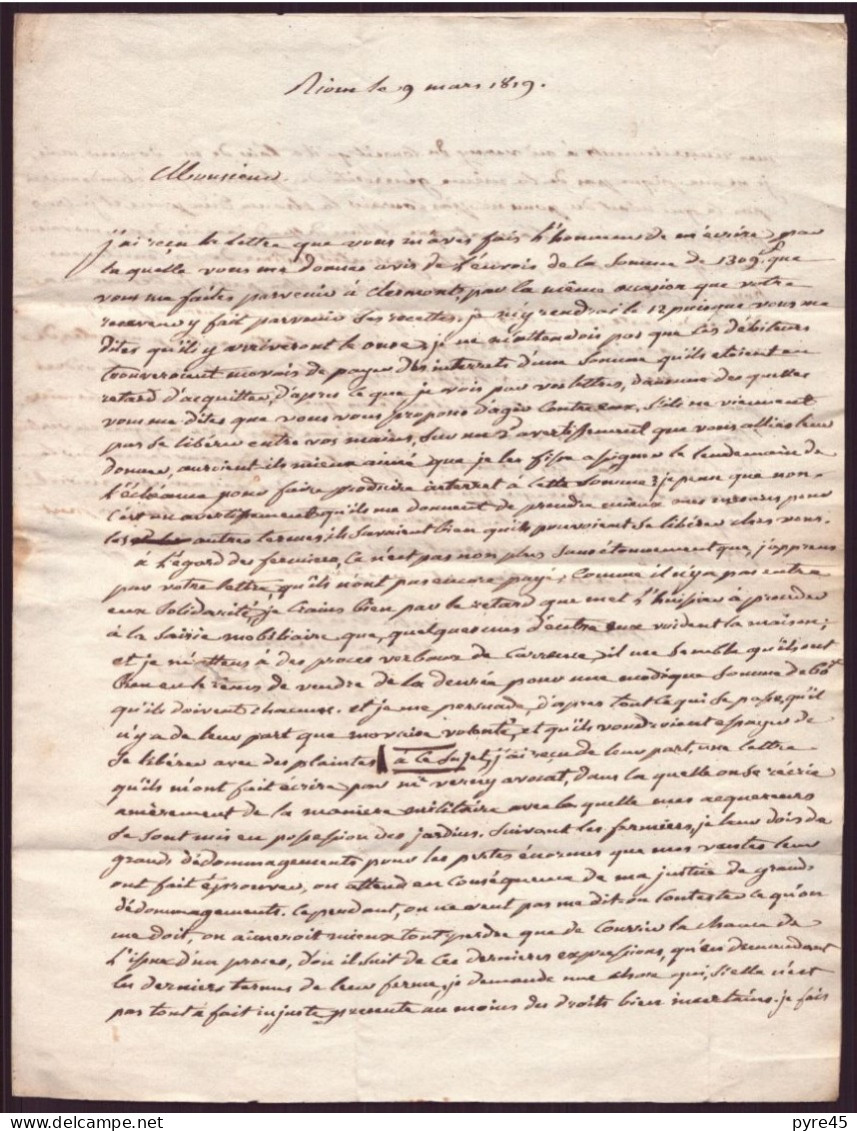 Riom le 9 mars 1819.
Monsieur.
j'ai reçu la lettre que vous m'avés fais l'honneur de m'écrire, par
la quelle vous me donnes avis de l'envois de la somme de 1309# que
vous me faites parvenir à Clermont, par la même occasion que votre
receveur y fait parvenir ses recettes. je m'y rendrai le 12 puisque vous me
dites qu'ils y arriveront le onze; je ne m'attendois pas que les débiteurs
trouveroient movais de payer des interrets d'une somme qu'ils etoient en
retard d'acquitter, d'apres ce que je vois par vos lettres, dans une des quelles
vous me dites que vous vous proposés d'agir contre eux, s'ils ne viennent
pas se libérer entre vos mains, sur un 2e avertissement que vous alliés leur
donner, auroient ils mieux aimé que je les fisse assigner le lendemain de
l'échéance pour faire produire interret à cette somme; je pense que non.
c'est un avertissement qu'ils me donnent de prendre mieux mes mesures pour
les autres termes, ils savaient bien qu'ils pourroient se libérer chés vous.
à l'égard des fermiers, ce n'est pas non plus sans étonnement que j'apprens
par votre lettre, qu'ils n'ont pas encore payé; comme il n'y a pas entre
eux solidarité, je crains bien par le retard que met l'huissier à proceder
à la saisie mobiliaire que, quelques uns d'entre eux vuident la maison;
et je m'attens à des proces verbaux de carrence, il me semble qu'ils ont
bien eu le tems de vendre de la denrée pour une modique somme de 60#
qu'ils doivent chacuns. et je me persuade, d'apres tout ce qui se passe, qu'il
n'y a de leur part que movaise volonté, et qu'ils voudroient essayer de
se libérer avec des plaintes. à ce sujet, j'ai reçu de leur part, une lettre
qu'ils m'ont fait écrire par mr verny avocat, dans la quelle on se récrie
amèrement de la maniere militaire avec la quelle mes acquereurs
se sont mis en possession des jardins. suivant les fermiers, je leur dois de
grands dédommagements pour les pertes énormes que mes ventes leur
ont fait éprouver, on attend en conséquence de ma justice de grands
dédommagements. cependant, on ne veut pas me dit on contester ce qu'on
me doit, on aimeroit mieux tout perdre que de courrir la chance de
l'issue d'un proces, d'où il suit de ces dernieres expressions, qu'en demandant
les derniers termes de leur ferme, je demande une chose qui, si elle n'est
pas tout à fait injuste, presente au moins des droits bien incertains. je fais
pyre45